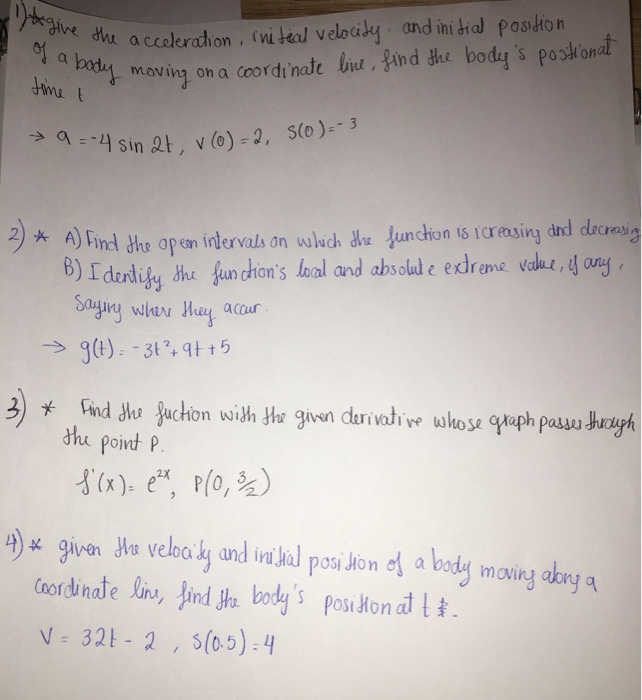 1) give the acceleration, initial velocity. and initial position
of a body moving on a coordinate line, find the body's positionat
time t
→ a = -4 sin 2t, v(0) = 2, s(0) = -3
2) * A) Find the open intervals on which the function is icreasing and decreasing
B) Identify the function's local and absolute extreme value, if any,
Saying where they accur.
→ g(t) = -3t² + 9t + 5
3) * Find the fuction with the given derivative whose graph passes through
the point P.
f'(x) = e²ˣ, P(0, 3/2)
4) * given the velocity and initial position of a body moving along a
coordinate line, find the body's position at t
V = 32t - 2, s(0.5) = 4